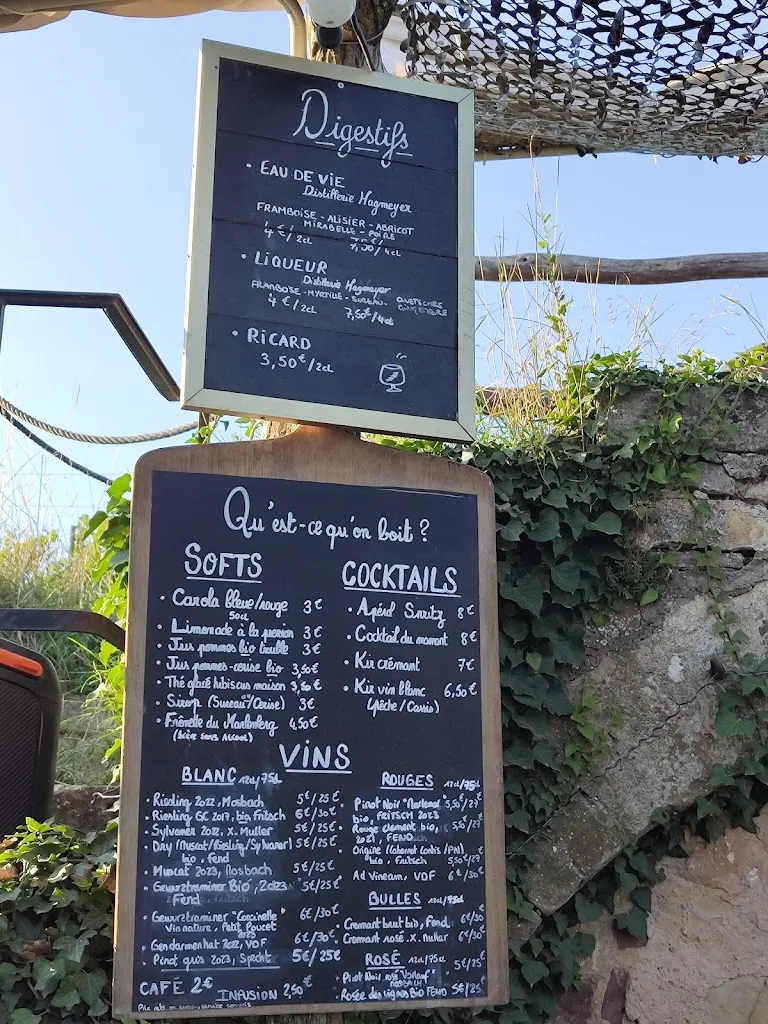 Digestifs
• EAU DE VIE
Distillerie Hagmeyer
FRAMBOISE - ALISIER - ABRICOT
MIRABELLE - POIRE
4 €/2cl 7,50/4cl
• LIQUEUR
Distillerie Hagmeyer
FRAMBOISE - MYRTILLE - SUREAU - QUETSCHES
GINGEMBRE
4 €/2cl 7,50€/4cl
• RICARD
3,50€/2cl
Qu'est-ce qu'on boit ?
SOFTS
• Carola bleue/rouge 3€
50cl
• Limonade à la pression 3€
• Jus pommes bio trouble 3€
• Jus pommes-cerise bio 3,50€
• Thé glacé hibiscus maison 3,50€
• Sirop (Sureau/Cerise) 3€
• Frénette du Marlenberg 4,50€
(bière sans Alcool)
COCKTAILS
• Apérol Spritz 8€
• Cocktail du moment 8€
• Kir crémant 7€
• Kir vin blanc 6,50€
(pêche/Cassis)
VINS
BLANC 12cl/75cl
• Riesling 2022, Mosbach 5€/25€
• Riesling GC 2017, bio, Fritsch 6€/30€
• Sylvaner 2022, X. Muller 5€/25€
• Dry (Muscat/Riesling/Sylvaner) 5€/25€
bio, Fend
• Muscat 2023, Mosbach 5€/25€
• Gewurztraminer Bio, 2023 5€/25€
Fend
• Gewurztraminer "Coccinelle" 6€/30€
Vin nature, Petit Poucet
2023
• Gendarmenhat 2022, VDF 6€/30€
• Pinot gris 2023, Specht 5€/25€
ROUGES 12cl/75cl
• Pinot Noir 5,50/27€
bio, FRITSCH 2023
• Rouge clément bio, 5,50/27€
2021, FEND
• Origine (Cabernet Cortis/PN)
bio, Fritsch 5,50/27€
• Ad Vineam, VDF 6€/30€
BULLES 12cl/75cl
• Cremant brut bio, Fend 6€/30€
• Cremant rosé X. Muller 6€/30€
ROSÉ 12cl/75cl
• Pinot Noir rosé "Vorlauf" 5€/25€
MOSBACH
• Rosée des vignes Bio FEND 5€/25€
CAFÉ 2€
INFUSION 2,50€
Prix nets en euros, service compris